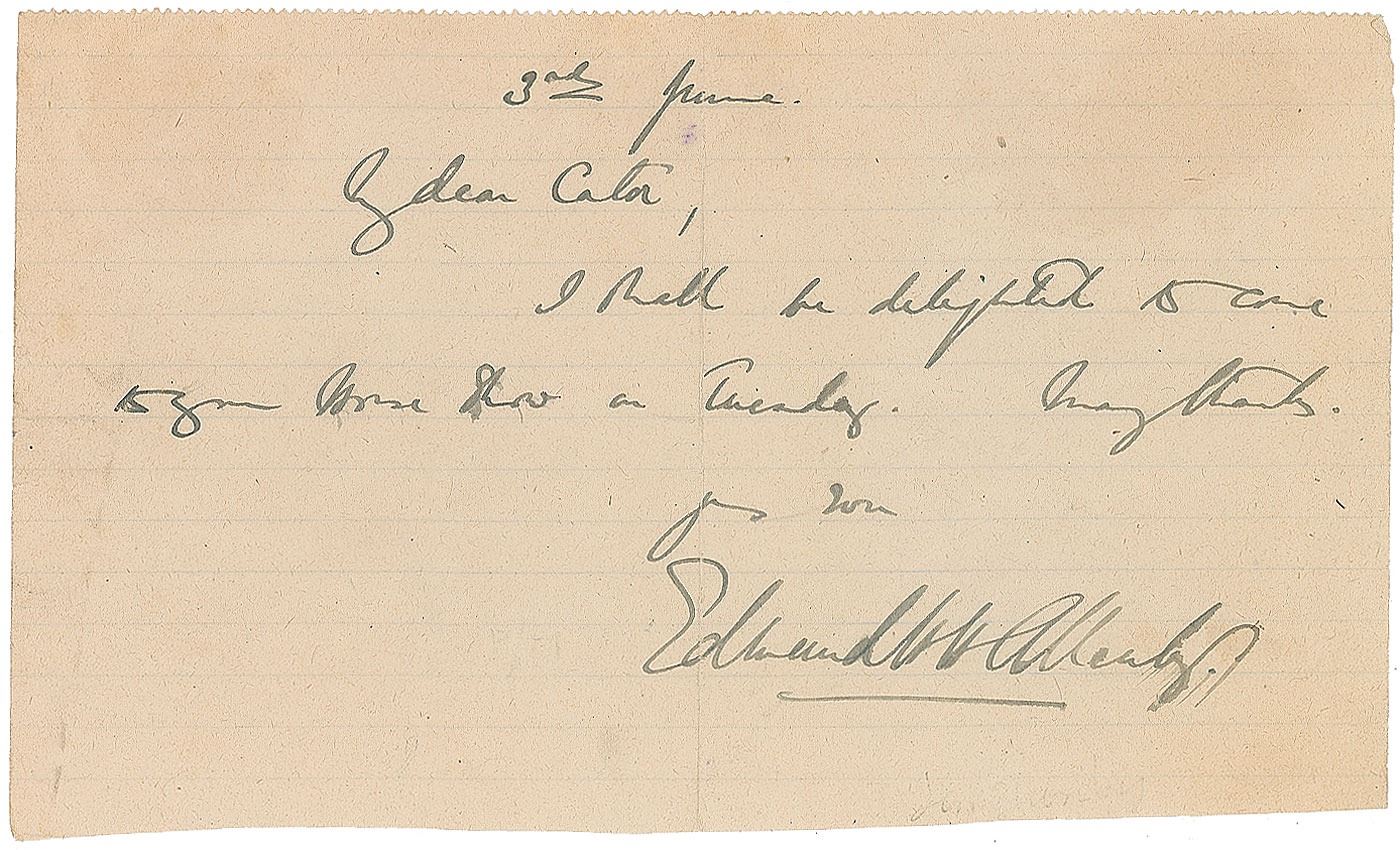 3rd June.
My dear Cator,
I shall be delighted to come
to your Horse Show on Tuesday. Many thanks.
yrs
Edmund H H Allenby.